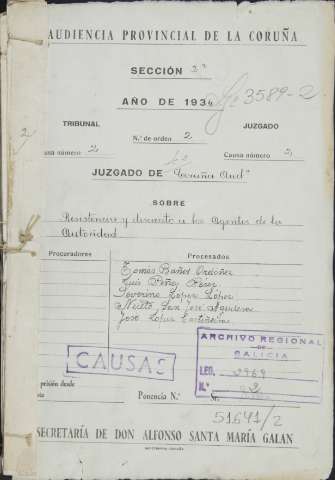 AUDIENCIA PROVINCIAL DE LA CORUÑA
SECCIÓN 2ª
AÑO DE 1934
3589-2
TRIBUNAL
JUZGADO
N.º de orden 2
2
usa número 2
Causa número 2
JUZGADO DE Coruña Aud
SOBRE
Resistencia y desacato a los Agentes de la
Autoridad
Procuradores
Procesados
Tomas Bañet Ordoñez
Luis Pérez
Severino López López
San José
José López
CAUSAS
ARCHIVO REGIONAL
DE
GALICIA
LEG. 2969
N.º 2
prisión desde
Ponencia N.º
Sr.
51641/2
SECRETARÍA DE DON ALFONSO SANTA MARÍA GALAN